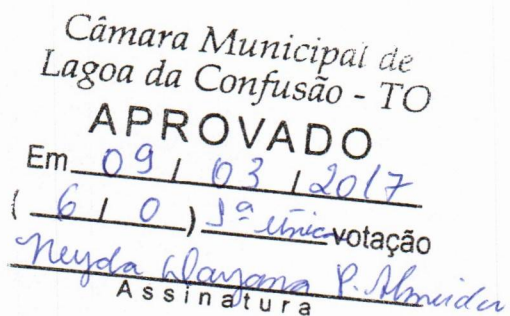 Câmara Municipal de
Lagoa da Confusão - TO
APROVADO
Em 09 / 03 / 2017
( 6 / 0 ) 1ª única votação
Neyda Dayana P. Almeida
Assinatura